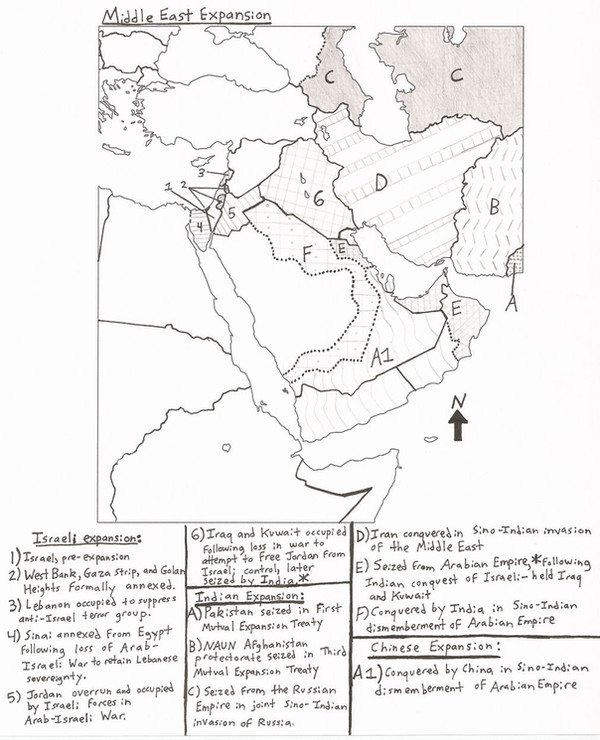 Middle East Expansion
C
C
3
1 2
6
D
5
B
4
F
E
A
E
A1
N
Israeli expansion:
1) Israel, pre-expansion
2) West Bank, Gaza Strip, and Golan
Heights formally annexed.
3) Lebanon occupied to suppress
anti-Israel terror group.
4) Sinai annexed from Egypt
following loss of Arab-
Israeli War to retain Lebanese
sovereignty.
5) Jordan overrun and occupied
by Israeli forces in
Arab-Israeli War.
6) Iraq and Kuwait occupied
following loss in war to
attempt to free Jordan from
Israeli control, later
seized by India.*
Indian Expansion:
A) Pakistan seized in First
Mutual Expansion Treaty
B) NAUN Afghanistan
protectorate seized in Third
Mutual Expansion Treaty
C) Seized from the Russian
Empire in joint Sino-Indian
invasion of Russia.
D) Iran conquered in Sino-Indian invasion
of the Middle East
E) Seized from Arabian Empire,* following
Indian conquest of Israeli-held Iraq
and Kuwait
F) Conquered by India in Sino-Indian
dismemberment of Arabian Empire
Chinese Expansion:
A1) Conquered by China in Sino-Indian
dismemberment of Arabian Empire